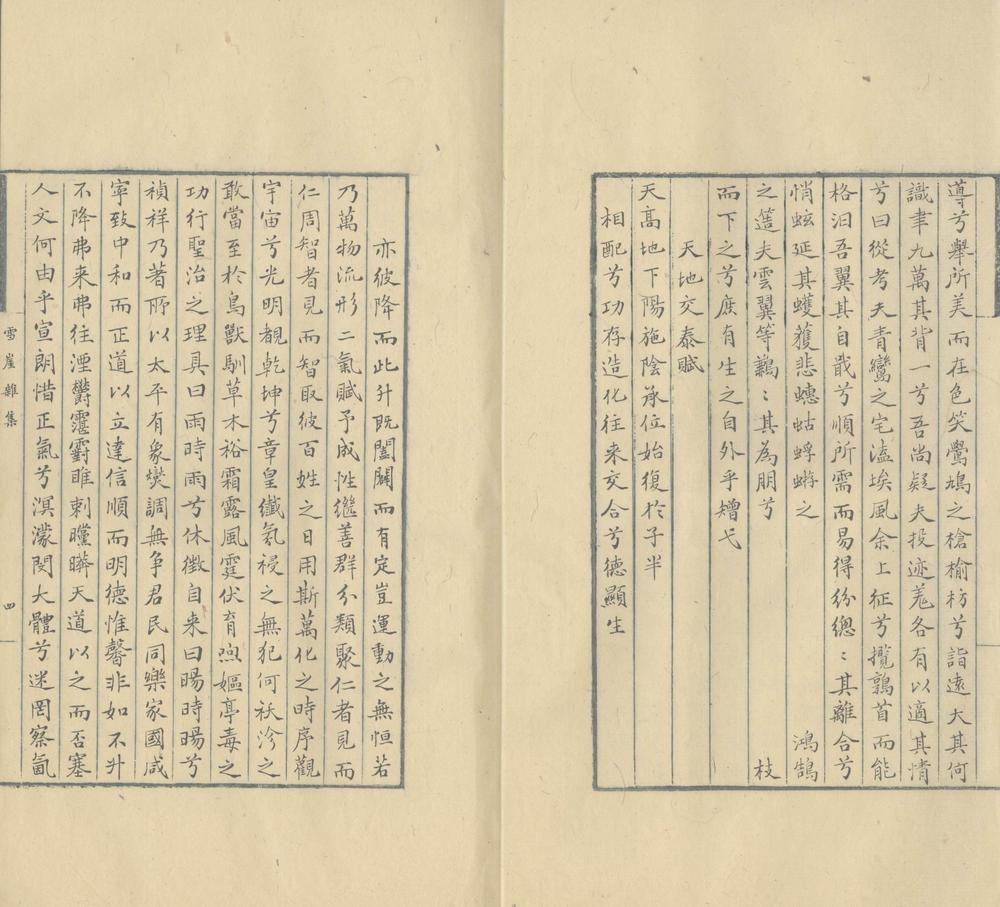 導兮舉所美而在色笑鶯鳩之槍榆枋兮詣遠大其何
識聿九萬其背一兮吾尚疑夫投迹羌各有以適其情
兮曰從考夫青鸞之宅溘埃風余上征兮攬鶉首而能
格汩吾翼其自戢兮順所需而易得紛總〻其離合兮
悄蛟延其蠖蠖悲蟪蛄蜉蝣之 鴻鵠
之簉夫雲翼等鷫〻其為朋兮 枝
而下之兮庶有生之自外乎矰弋
天地交泰賦
天高地下陽施陰承位始復於子半
相配兮功存造化往來交合兮德顯生
亦彼降而此升既闔闢而有定豈運動之無恒若
乃萬物流形二氣賦予成性繼善群分類聚仁者見而
仁周智者見而智取彼百姓之日用斯萬化之時序觀
宇宙兮光明覩乾坤兮章皇纖氛祲之無犯何祅沴之
敢當至於鳥獸馴草木裕霜露風霆伏育煦嫗亭毒之
功行聖治之理具曰雨時雨兮休徵自来曰暘時暘兮
禎祥乃著所以太平有象爕調無争君民同樂家國咸
寧致中和而正道以立達信順而明德惟馨非如不升
不降弗来弗往湮欝霮䨴睢刺曭曭天道以之而否塞
人文何由乎宣朗惜正氣兮溟濛閔大體兮迷罔察氤
雪崖雜集
四